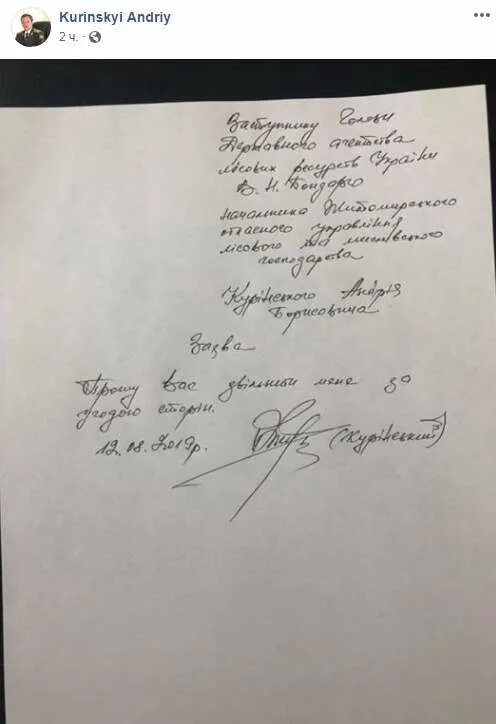 Kurinskyi Andriy
2 ч.
Заступнику Голови
Державного агентства
лісових ресурсів України
В. Н. Бондарю
начальника Житомирського
обласного управління
лісового та мисливського
господарства
Курінського Андрія
Борисовича
Заява
Прошу Вас звільнити мене за
угодою сторін.
12.08.2019р.
(Курінський)